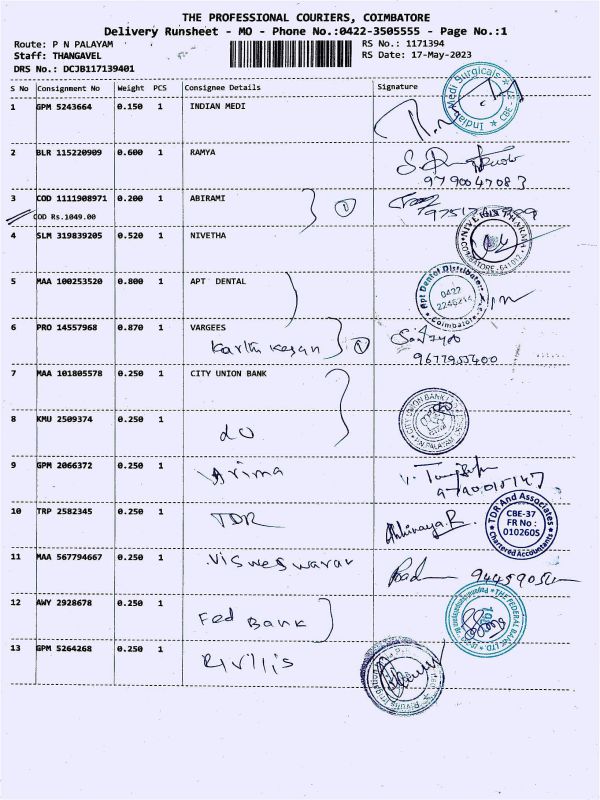 THE PROFESSIONAL COURIERS, COIMBATORE
Delivery Runsheet - MO - Phone No.:0422-3505555 - Page No.:1
Route: P N PALAYAM RS No.: 1171394
Staff: THANGAVEL RS Date: 17-May-2023
DRS No.: DCJB117139401
S No Consignment No Weight PCS Consignee Details Signature
1 GPM 5243664 0.150 1 INDIAN MEDI
Indian Medi Surgicals * CBE -
2 BLR 115220909 0.600 1 RAMYA
9790047083
3 COD 1111908971 0.200 1 ABIRAMI 1
COD Rs.1049.00
4 SLM 319839205 0.520 1 NIVETHA
COIMBATORE - 641012
5 MAA 100253520 0.800 1 APT DENTAL
Apt Dental Distributors
0422
Coimbatore
6 PRO 14557968 0.870 1 VARGEES
Karthikeyan 1
7 MAA 101805578 0.250 1 CITY UNION BANK
CITY UNION BANK
P.N.PALAYAM
8 KMU 2509374 0.250 1 do
9 GPM 2066372 0.250 1 Arima
10 TRP 2582345 0.250 1 TDR Abhinaya.R.
TDR And Associates
CBE-37
FR No :
010260S
Chartered Accountants
11 MAA 567794667 0.250 1 Visweswaran
12 AWY 2928678 0.250 1 Fed Bank
THE FEDERAL BANK LTD.
13 GPM 5264268 0.250 1 Rivllis
Rivulis Irrigation